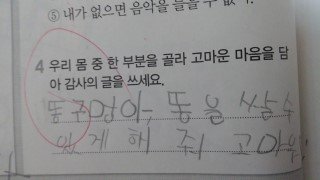 ⑤ 내가 없으면 음악을 들을 수 없
4 우리 몸 중 한 부분을 골라 고마운 마음을 담
아 감사의 글을 쓰세요.
똥구멍아, 똥을 쌀수
있게 해 줘 고마워